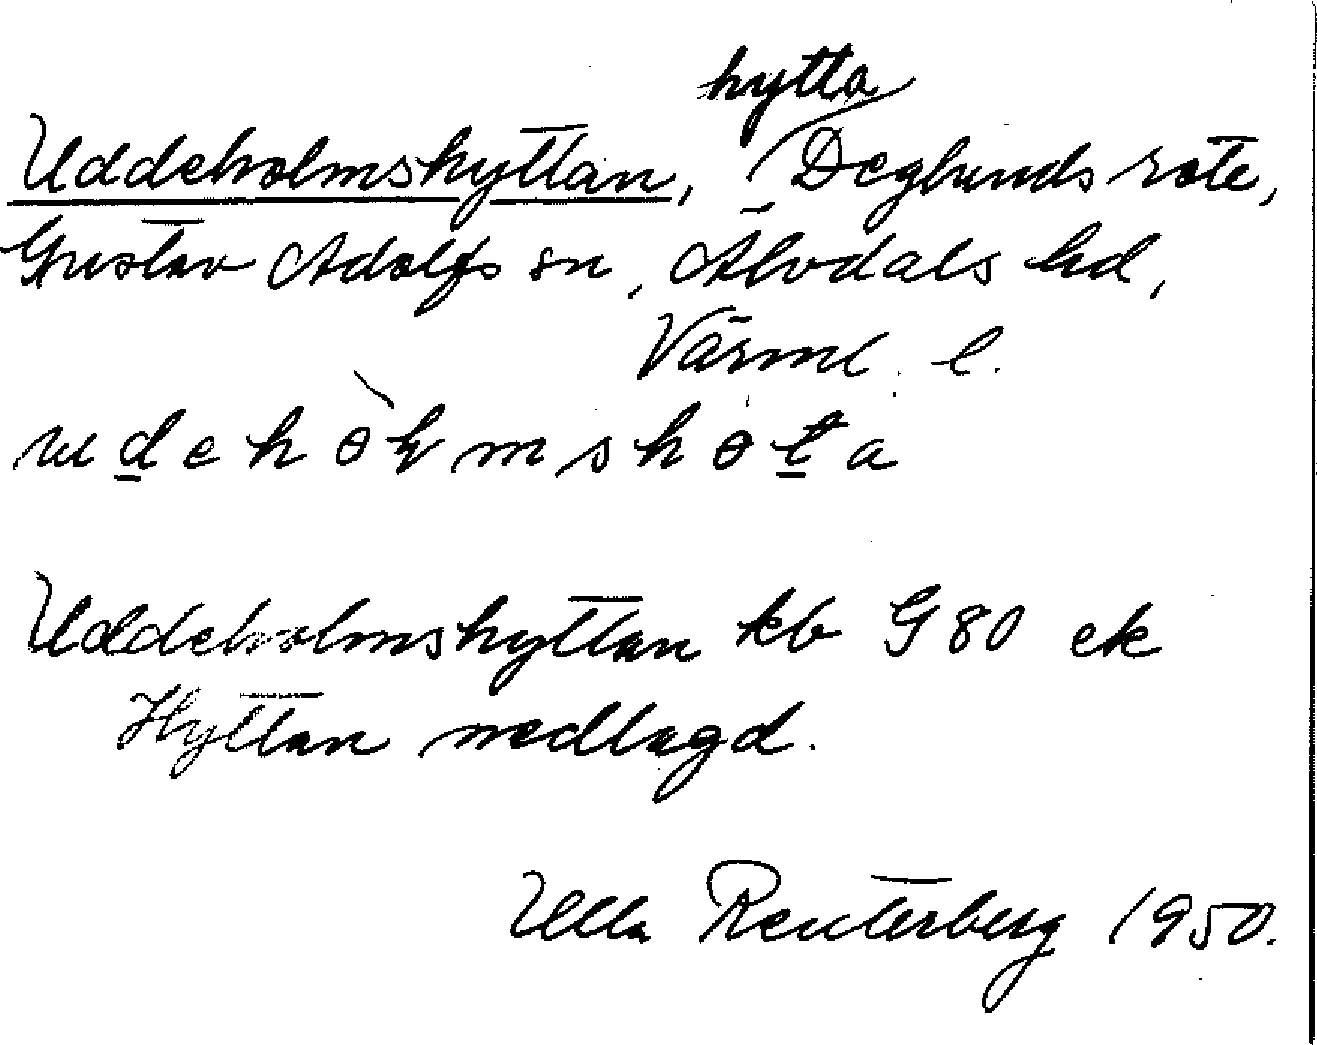 hytta
Uddeholmshyttan, Deglunds rote,
Gustav Adolfs sn, Älvdals hd,
Värml. l.
Uddeholmshyttan kb G 80 ek
Hyttan nedlagd.
Ulla Reuterberg 1950.